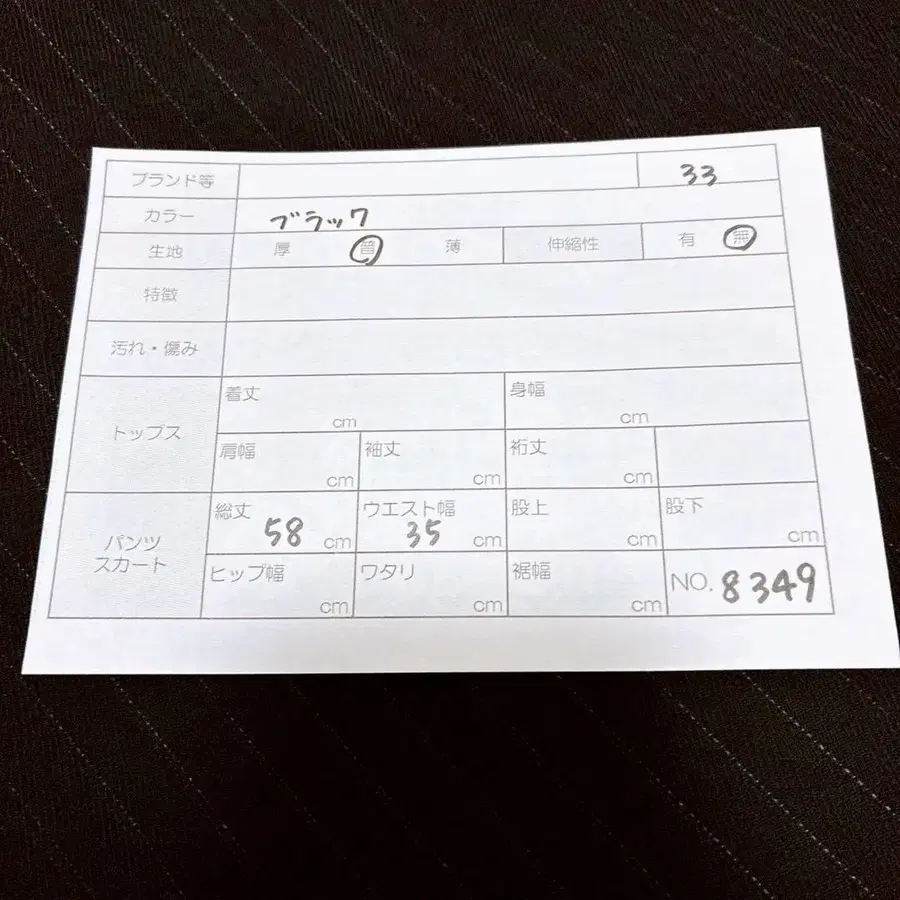 ブランド等 33
カラー ブラック
生地 厚 普 薄 伸縮性 有 無
特徴
汚れ・傷み
トップス 着丈 cm 身幅 cm
肩幅 cm 袖丈 cm 裄丈 cm
パンツ スカート 総丈 58 cm ウエスト幅 35 cm 股上 cm 股下 cm
ヒップ幅 cm ワタリ cm 裾幅 cm NO. 8349